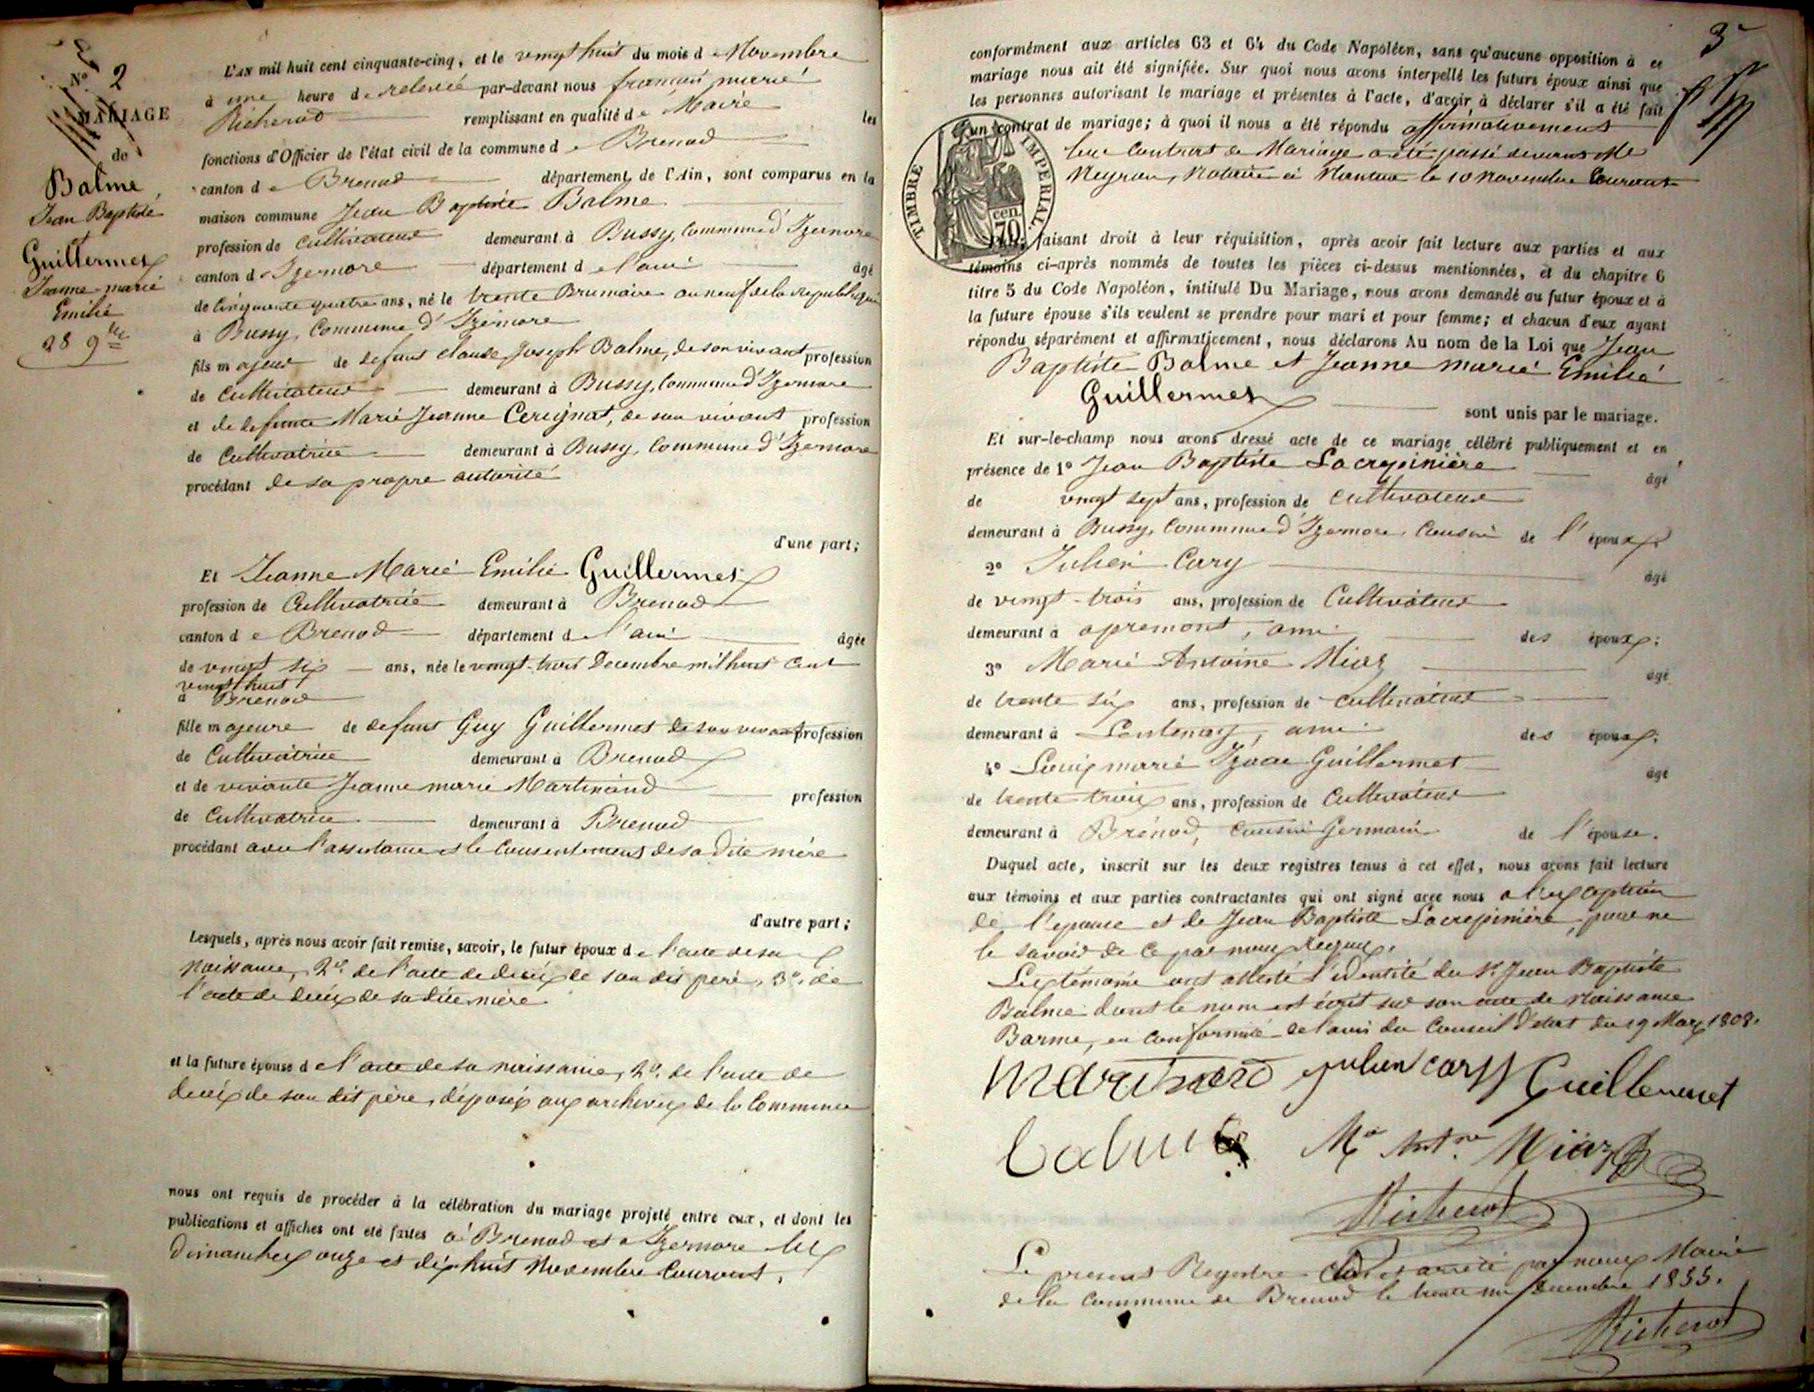 N° 2
MARIAGE
de
Balme
Jean Baptiste
et
Guillermet
Jeanne marie
Emilie
28 9bre
L'AN mil huit cent cinquante-cinq, et le vingt huit du mois d e Novembre
à une heure d e relevée par-devant nous françois marie
Richerod remplissant en qualité d e Maire les
fonctions d'Officier de l'état civil de la commune d e Brenod
canton d e Brenod département de l'Ain, sont comparus en la
maison commune Jean Baptiste Balme
profession de cultivateur demeurant à Bussy, Commune d'Izernore
canton d Izernore département d e l'ain âgé
de cinquante quatre ans, né le trente Brumaire an neuf de la république
à Bussy, Commune d'Izernore
fils majeur de defunt Claude Joseph Balme, de son vivant profession
de Cultivateur demeurant à Bussy, Commune d'Izernore
et de defunte Marie Jeanne Cerignat, de son vivant profession
de Cultivatrice demeurant à Bussy, Commune d'Izernore
procédant de sa propre autorité
d'une part;
Et Jeanne Marie Emilie Guillermet
profession de Cultivatrice demeurant à Brenod
canton d e Brenod département d l'ain âgée
de vingt six ans, née le vingt-trois Decembre mil huit cent
vingt huit
à Brenod
fille majeure de defunt Guy Guillermet de son vivant profession
de Cultivatrice demeurant à Brenod
et de vivante Jeanne marie Martinand profession
de Cultivatrice demeurant à Brenod
procédant avec l'assistance et le Consentement de sa dite mère
d'autre part;
Lesquels, après nous avoir fait remise, savoir, le futur époux d e l'acte de sa
naissance, 2° de l'acte de décès de son dit père, 3° de
l'acte de décès de sa dite mère
et la future épouse d e l'acte de sa naissance, 2° de l'acte de
décès de son dit père, déposés aux archives de la Commune
nous ont requis de procéder à la célébration du mariage projeté entre eux, et dont les
publications et affiches ont été faites à Brenod et à Izernore les
dimanches onze et dix huit Novembre Courant.
3
conformément aux articles 63 et 64 du Code Napoléon, sans qu'aucune opposition à ce
mariage nous ait été signifiée. Sur quoi nous avons interpellé les futurs époux ainsi que
les personnes autorisant le mariage et présentes à l'acte, d'avoir à déclarer s'il a été fait
un contrat de mariage; à quoi il nous a été répondu affirmativement
leur Contrat de Mariage a été passé devant Me
Neyron, Notaire à Nantua le 10 novembre Courant
TIMBRE IMPERIAL
70 cen.
faisant droit à leur réquisition, après avoir fait lecture aux parties et aux
témoins ci-après nommés de toutes les pièces ci-dessus mentionnées, et du chapitre 6
titre 5 du Code Napoléon, intitulé Du Mariage, nous avons demandé au futur époux et à
la future épouse s'ils veulent se prendre pour mari et pour femme; et chacun d'eux ayant
répondu séparément et affirmativement, nous déclarons Au nom de la Loi que Jean
Baptiste Balme et Jeanne marie Emilie
Guillermet sont unis par le mariage.
Et sur-le-champ nous avons dressé acte de ce mariage célébré publiquement et en
présence de 1° Jean Baptiste Lacrepinière âgé
de vingt sept ans, profession de cultivateur
demeurant à Bussy, Commune d'Izernore, Cousin de l'époux;
2° Julien Cary âgé
de vingt-trois ans, profession de Cultivateur
demeurant à apremont, ami des époux;
3° Marie Antoine Miaz âgé
de trente six ans, profession de cultivateur
demeurant à Lentenay, ami des époux;
4° Louis marie Izaac Guillermet âgé
de trente trois ans, profession de Cultivateur
demeurant à Brénod, cousin Germain de l'épouse.
Duquel acte, inscrit sur les deux registres tenus à cet effet, nous avons fait lecture
aux témoins et aux parties contractantes qui ont signé avec nous a l'exception
de l'epouse et de Jean Baptiste Lacrepinière, pour ne
le savoir de ce par nous Requis.
Les témoins ont attesté l'identité du Sr Jean Baptiste
Balme dont le nom est écrit sur son acte de naissance
Barme, en conformité de l'avis du Conseil d'etat du 19 Mars 1808.
Martinand julien cary Guillermet
balme Me Antne Miaz
Richerod
Le present Registre Clos et arrêté par nous Maire
de la Commune de Brenod le trente un decembre 1855.
Richerod